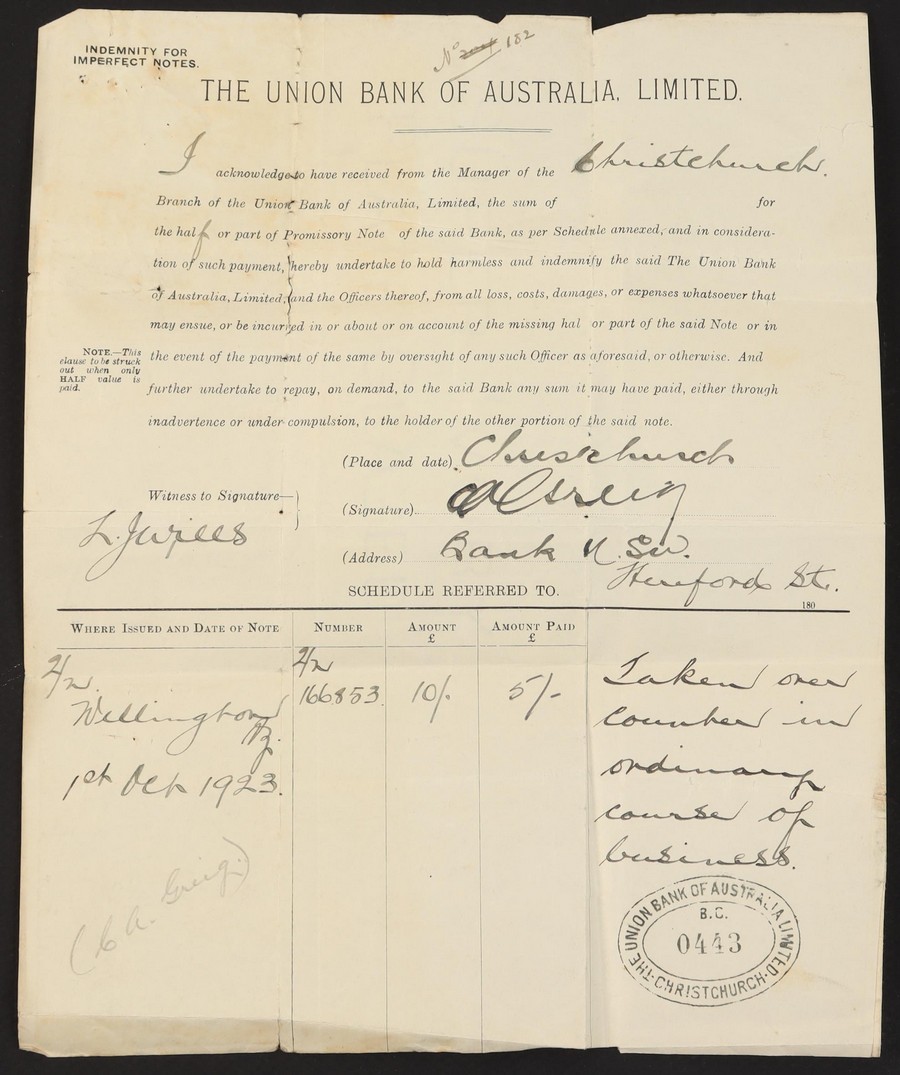 INDEMNITY FOR
IMPERFECT NOTES.
No 182
THE UNION BANK OF AUSTRALIA, LIMITED.
I acknowledge to have received from the Manager of the Christchurch.
Branch of the Union Bank of Australia, Limited, the sum of for
the half or part of Promissory Note of the said Bank, as per Schedule annexed, and in considera-
tion of such payment, hereby undertake to hold harmless and indemnify the said The Union Bank
of Australia, Limited, and the Officers thereof, from all loss, costs, damages, or expenses whatsoever that
may ensue, or be incurred in or about or on account of the missing hal or part of the said Note or in
the event of the payment of the same by oversight of any such Officer as aforesaid, or otherwise. And
further undertake to repay, on demand, to the said Bank any sum it may have paid, either through
inadvertence or under compulsion, to the holder of the other portion of the said note.
NOTE.—This
clause to be struck
out when only
HALF value is
paid.
(Place and date) Christchurch
Witness to Signature—
(Signature) CAGreig
(Address) Bank N.S.W.
Hereford St.
SCHEDULE REFERRED TO.
180
WHERE ISSUED AND DATE OF NOTE NUMBER AMOUNT £ AMOUNT PAID £
Wellington 166853 10/- 5/-
NZ.
1st Oct 1923.
Taken over
counter in
ordinary
course of
business.
(C A. Greig.)
THE UNION BANK OF AUSTRALIA LIMITED
B.C.
0443
CHRISTCHURCH